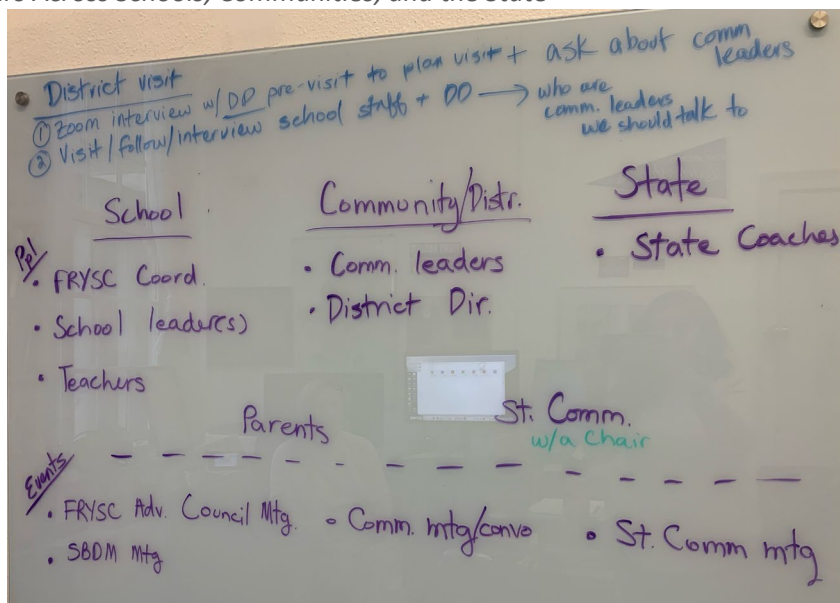 District visit
① Zoom interview w/ DD pre-visit to plan visit + ask about comm leaders
② Visit/follow/interview school staff + DD → who are comm. leaders we should talk to
School
Community/Distr.
State
Ppl
• FRYSC Coord.
• School leader(s)
• Teachers
• Comm. leaders
• District Dir.
• State Coaches
Parents
St. Comm.
w/a Chair
Events
• FRYSC Adv. Council Mtg.
• SBDM Mtg
• Comm. mtg/convo
• St. Comm mtg